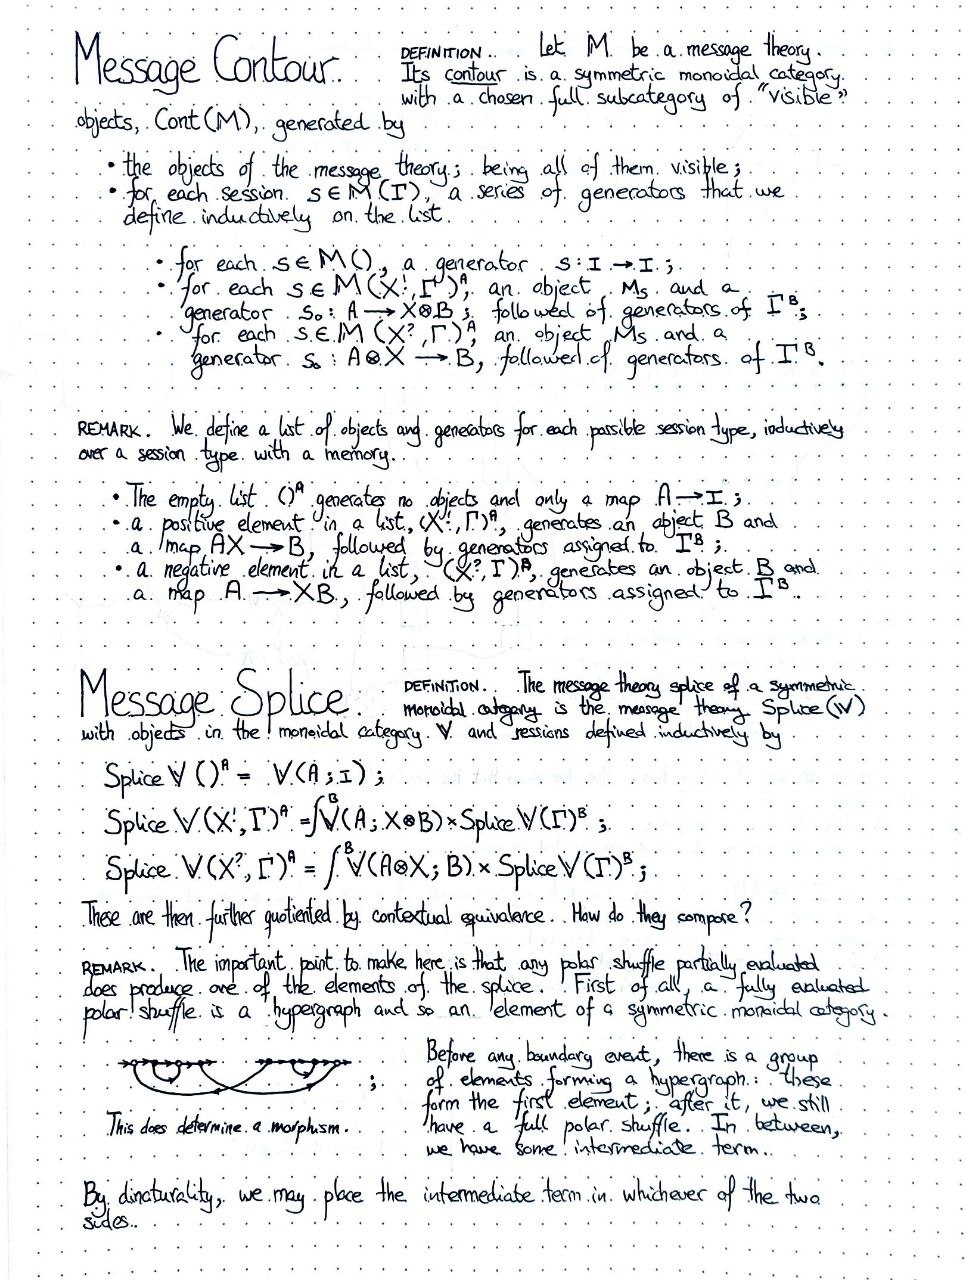 Message Contour.
DEFINITION. Let M be a message theory.
Its contour is a symmetric monoidal category
with a chosen full subcategory of "visible"
objects, Cont(M), generated by
• the objects of the message theory; being all of them visible;
• for each session s∈M(Γ), a series of generators that we
define inductively on the list.
• for each s∈M(), a generator s: I → I;
• for each s∈M(X!,Γ)ᴬ, an object Ms and a
generator s₀: A → X⊗B; followed of generators of Γᴮ;
• for each s∈M(X?,Γ)ᴬ, an object Ms and a
generator s₀: A⊗X → B, followed of generators of Γᴮ.
REMARK. We define a list of objects and generators for each possible session type, inductively
over a session type with a memory.
• The empty list ()ᴬ generates no objects and only a map A → I;
• a positive element in a list, (X!,Γ)ᴬ, generates an object B and
a map AX → B, followed by generators assigned to Γᴮ;
• a negative element in a list, (X?,Γ)ᴬ, generates an object B and
a map A → XB, followed by generators assigned to Γᴮ.
Message Splice.
DEFINITION. The message theory splice of a symmetric
monoidal category is the message theory Splice(V)
with objects in the monoidal category V and sessions defined inductively by
Splice V ()ᴬ = V(A; I);
Splice V(X!,Γ)ᴬ = ∫ᴮ V(A; X⊗B) × Splice V(Γ)ᴮ;
Splice V(X?,Γ)ᴬ = ∫ᴮ V(A⊗X; B) × Splice V(Γ)ᴮ;
These are then further quotiented by contextual equivalence. How do they compose?
REMARK. The important point to make here is that any polar shuffle partially evaluated
does produce one of the elements of the splice. First of all, a fully evaluated
polar shuffle is a hypergraph and so an element of a symmetric monoidal category.
;
This does determine a morphism.
Before any boundary event, there is a group
of elements forming a hypergraph: these
form the first element; after it, we still
have a full polar shuffle. In between,
we have some intermediate term.
By dinaturality, we may place the intermediate term in whichever of the two
sides.